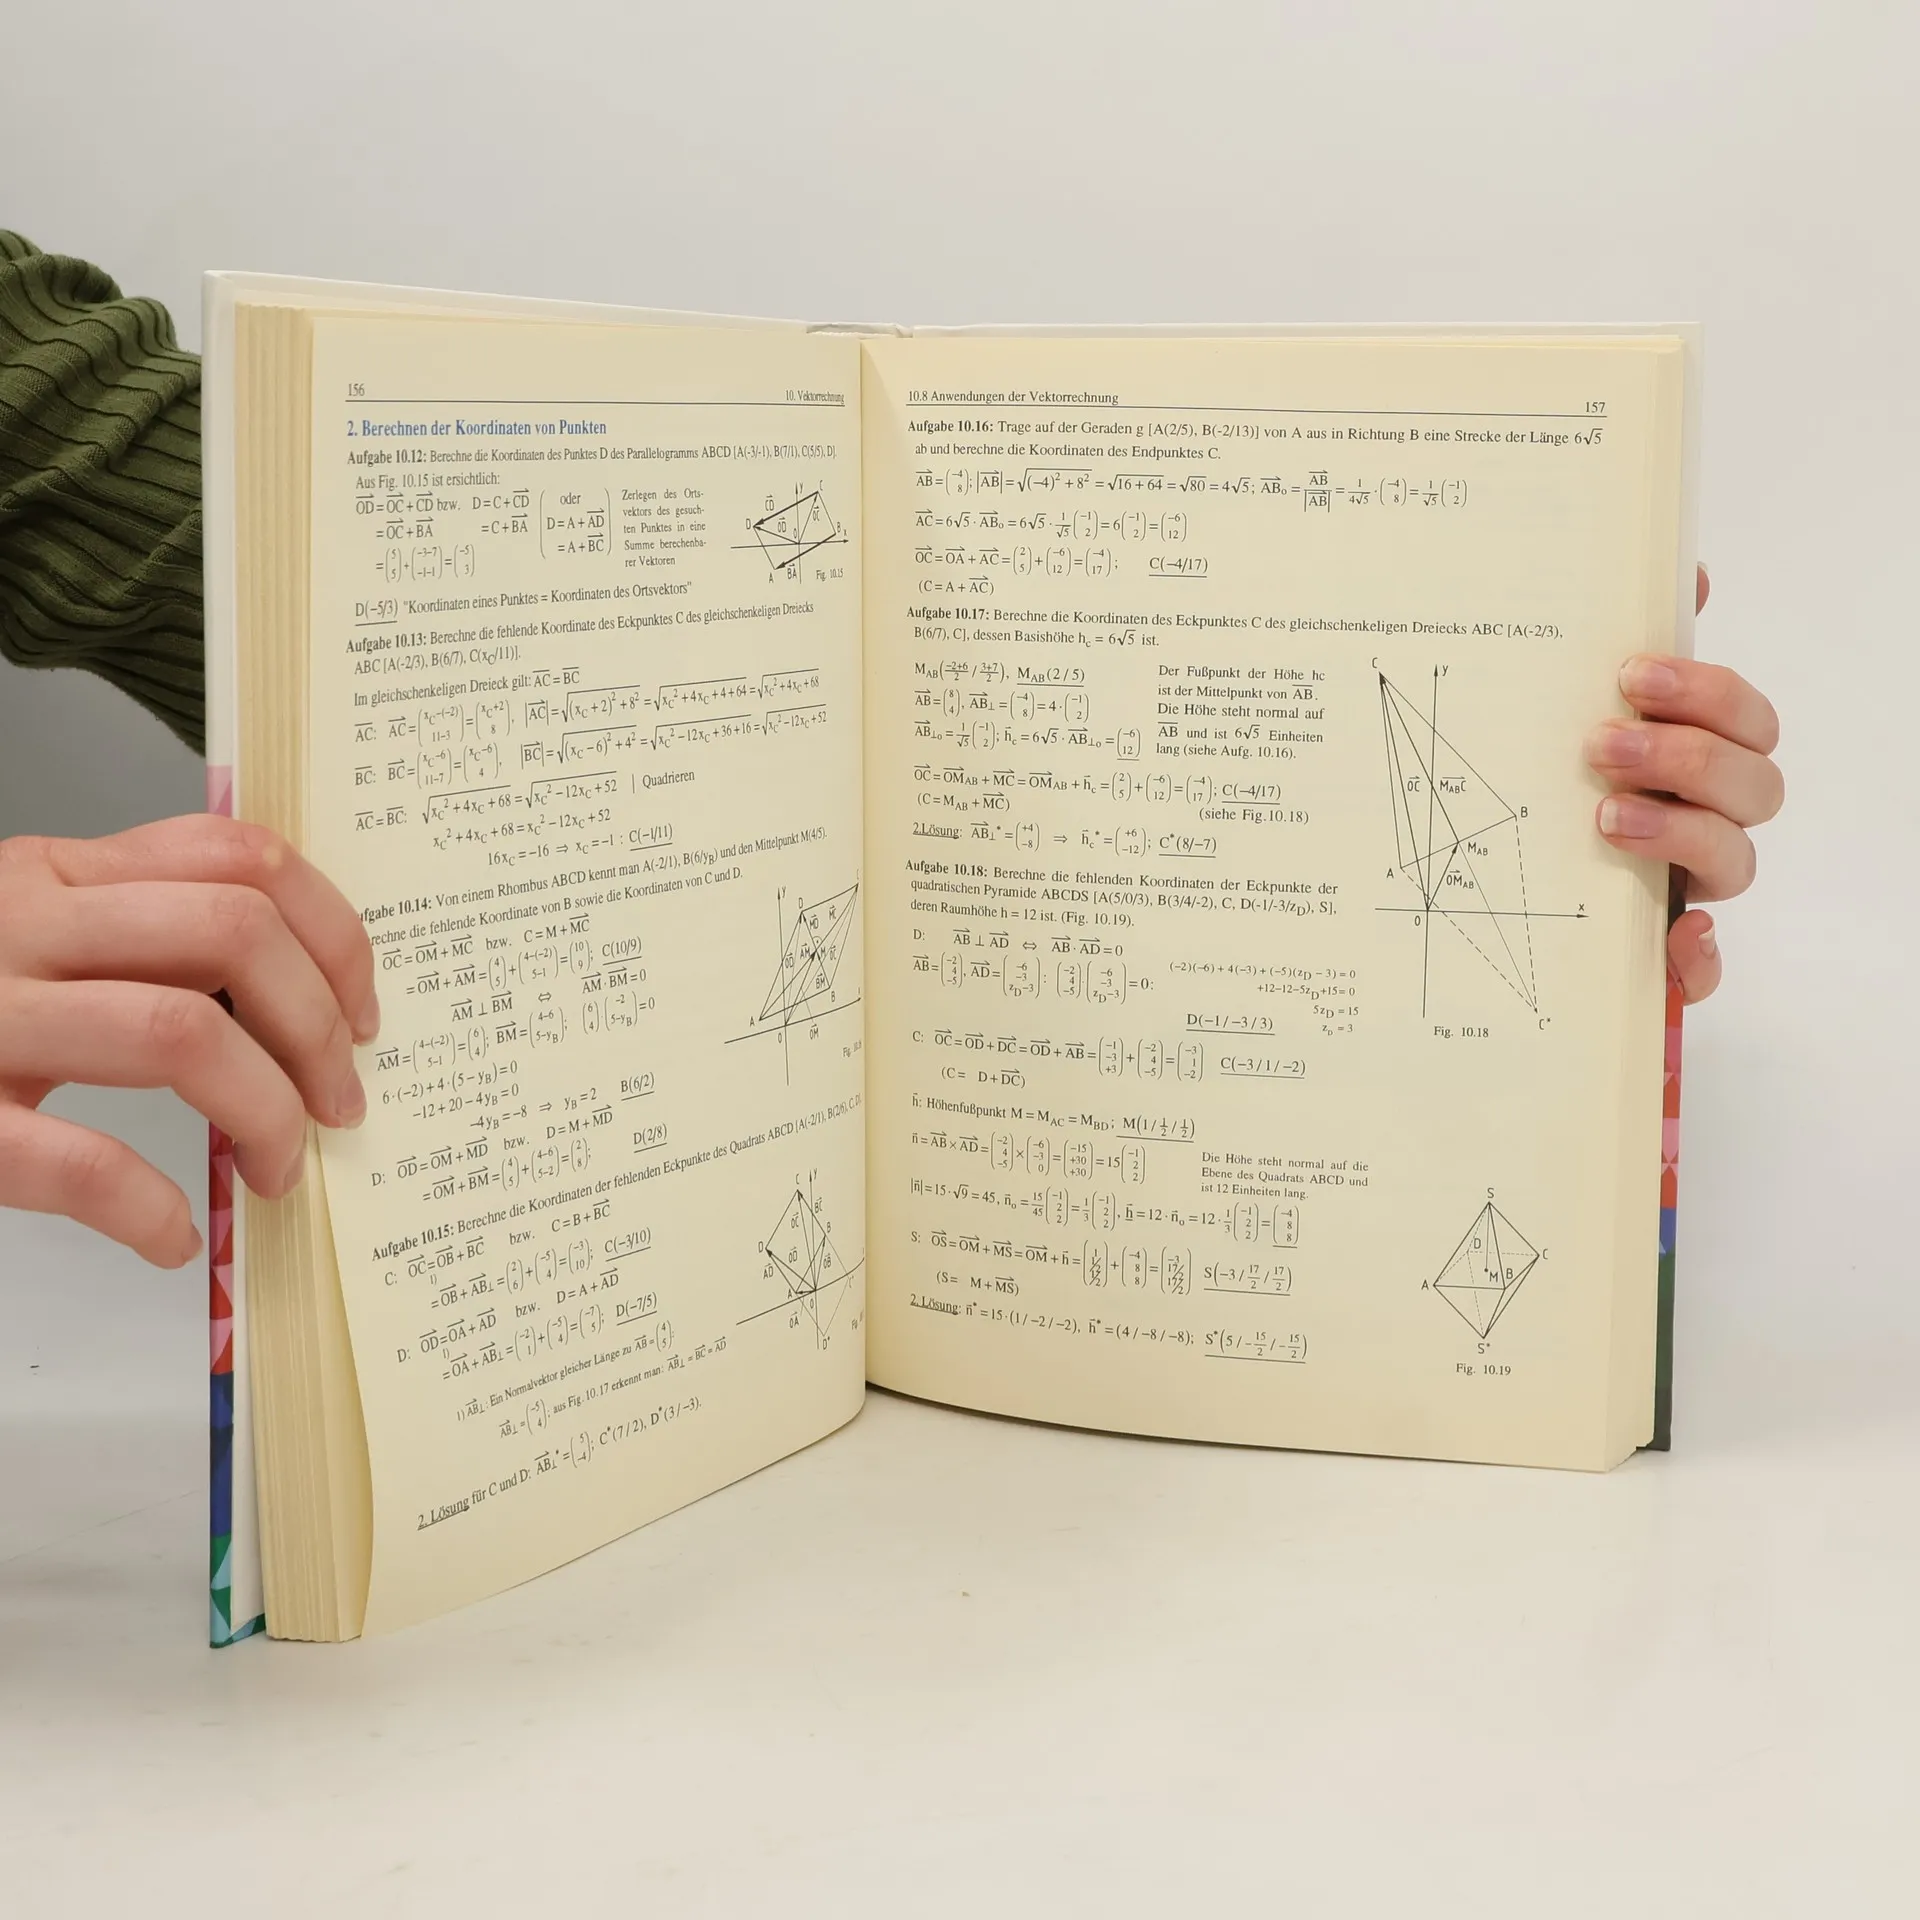 156
10. Vektorrechnung
2. Berechnen der Koordinaten von Punkten
Aufgabe 10.12: Berechne die Koordinaten des Punktes D des Parallelogramms ABCD [A(-3/-1), B(7/1), C(5/5), D].
Aus Fig. 10.15 ist ersichtlich:
OD = OC + CD bzw. D = C + CD ( oder
= OC + BA = C + BA D = A + AD
= (5 5) + (-3-7 -1-1) = (-5 3) = A + BC )
Zerlegen des Orts-
vektors des gesuch-
ten Punktes in eine
Summe berechenba-
rer Vektoren
Fig. 10.15
D(-5/3) "Koordinaten eines Punktes = Koordinaten des Ortsvektors"
Aufgabe 10.13: Berechne die fehlende Koordinate des Eckpunktes C des gleichschenkeligen Dreiecks
ABC [A(-2/3), B(6/7), C(xC/11)].
Im gleichschenkeligen Dreieck gilt: AC = BC
AC: AC = (xC-(-2) 11-3) = (xC+2 8), |AC| = √(xC+2)²+8² = √xC²+4xC+4+64 = √xC²+4xC+68
BC: BC = (xC-6 11-7) = (xC-6 4), |BC| = √(xC-6)²+4² = √xC²-12xC+36+16 = √xC²-12xC+52
AC = BC: √xC²+4xC+68 = √xC²-12xC+52 | Quadrieren
xC²+4xC+68 = xC²-12xC+52
16xC = -16 ⇒ xC = -1 : C(-1/11)
ufgabe 10.14: Von einem Rhombus ABCD kennt man A(-2/1), B(6/yB) und den Mittelpunkt M(4/5).
rechne die fehlende Koordinate von B sowie die Koordinaten von C und D.
OC = OM + MC bzw. C = M + MC
= OM + AM = (4 5) + (4-(-2) 5-1) = (10 9); C(10/9)
AM ⊥ BM ⇔ AM · BM = 0
AM = (4-(-2) 5-1) = (6 4); BM = (4-6 5-yB); (6 4)·(-2 5-yB) = 0
6·(-2)+4·(5-yB) = 0
-12+20-4yB = 0
-4yB = -8 ⇒ yB = 2 B(6/2)
D: OD = OM + MD bzw. D = M + MD
= OM + BM = (4 5) + (4-6 5-2) = (2 8); D(2/8)
Aufgabe 10.15: Berechne die Koordinaten der fehlenden Eckpunkte des Quadrats ABCD [A(-2/1), B(2/6), C, D].
C: OC = OB + BC bzw. C = B + BC
1)
= OB + AB⊥ = (2 6) + (-5 4) = (-3 10); C(-3/10)
D: OD = OA + AD bzw. D = A + AD
1)
= OA + AB⊥ = (-2 1) + (-5 4) = (-7 5); D(-7/5)
1) AB⊥: Ein Normalvektor gleicher Länge zu AB = (4 5):
AB⊥ = (-5 4); aus Fig. 10.17 erkennt man: AB⊥ = BC = AD
2. Lösung für C und D: AB⊥* = (5 -4); C*(7/2), D*(3/-3).
10.8 Anwendungen der Vektorrechnung
157
Aufgabe 10.16: Trage auf der Geraden g [A(2/5), B(-2/13)] von A aus in Richtung B eine Strecke der Länge 6√5
ab und berechne die Koordinaten des Endpunktes C.
AB = (-4 8); |AB| = √(-4)²+8² = √16+64 = √80 = 4√5; AB₀ = AB/|AB| = 1/4√5 · (-4 8) = 1/√5 (-1 2)
AC = 6√5 · AB₀ = 6√5 · 1/√5 (-1 2) = 6(-1 2) = (-6 12)
OC = OA + AC = (2 5) + (-6 12) = (-4 17); C(-4/17)
(C = A + AC)
Aufgabe 10.17: Berechne die Koordinaten des Eckpunktes C des gleichschenkeligen Dreiecks ABC [A(-2/3),
B(6/7), C], dessen Basishöhe hc = 6√5 ist.
MAB(-2+6/2 / 3+7/2), MAB(2/5)
AB = (8 4), AB⊥ = (-4 8) = 4·(-1 2)
AB⊥₀ = 1/√5 (-1 2); hc = 6√5 · AB⊥₀ = (-6 12)
Der Fußpunkt der Höhe hc
ist der Mittelpunkt von AB.
Die Höhe steht normal auf
AB und ist 6√5 Einheiten
lang (siehe Aufg. 10.16).
OC = OMAB + MC = OMAB + hc = (2 5) + (-6 12) = (-4 17); C(-4/17)
(C = MAB + MC) (siehe Fig.10.18)
2.Lösung: AB⊥* = (+4 -8) ⇒ hc* = (+6 -12); C*(8/-7)
C y OC MABC B MAB A OMAB x 0 C*
Fig. 10.18
Aufgabe 10.18: Berechne die fehlenden Koordinaten der Eckpunkte der
quadratischen Pyramide ABCDS [A(5/0/3), B(3/4/-2), C, D(-1/-3/zD), S],
deren Raumhöhe h = 12 ist. (Fig. 10.19).
D: AB ⊥ AD ⇔ AB · AD = 0
AB = (-2 4 -5), AD = (-6 -3 zD-3): (-2 4 -5)·(-6 -3 zD-3) = 0:
(-2)(-6)+4(-3)+(-5)(zD-3) = 0
+12-12-5zD+15 = 0
5zD = 15
D(-1/-3/3) zD = 3
C: OC = OD + DC = OD + AB = (-1 -3 +3) + (-2 4 -5) = (-3 1 -2) C(-3/1/-2)
(C = D + DC)
h: Höhenfußpunkt M = MAC = MBD; M(1/½/½)
n = AB × AD = (-2 4 -5) × (-6 -3 0) = (-15 +30 +30) = 15(-1 2 2)
Die Höhe steht normal auf die
Ebene des Quadrats ABCD und
ist 12 Einheiten lang.
|n| = 15·√9 = 45, n₀ = 15/45 (-1 2 2) = 1/3 (-1 2 2), h = 12·n₀ = 12·1/3 (-1 2 2) = (-4 8 8)
S: OS = OM + MS = OM + h = (1 1/2 1/2) + (-4 8 8) = (-3 17/2 17/2) S(-3/17/2/17/2)
(S = M + MS)
2. Lösung: n* = 15·(1/-2/-2), h* = (4/-8/-8); S*(5/-15/2/-15/2)
S D C M B A S*
Fig. 10.19